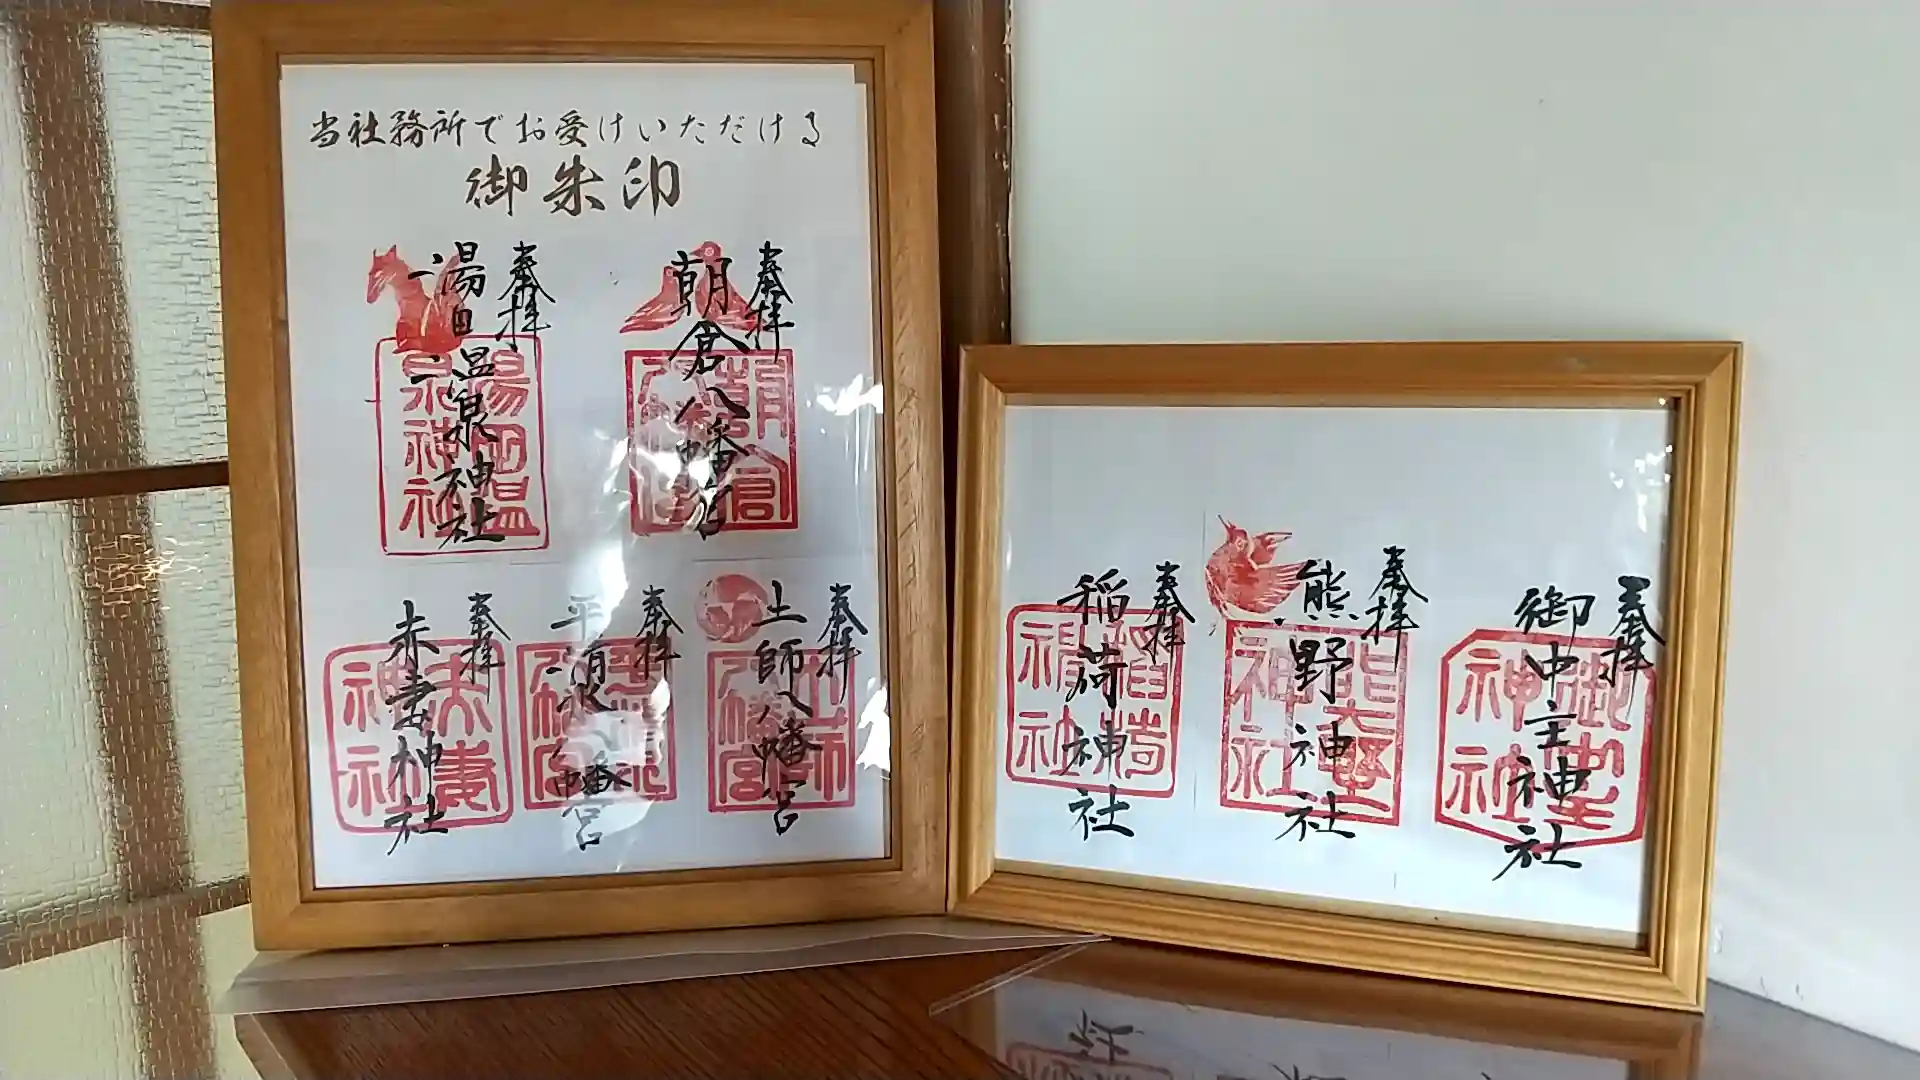 当社務所でお受けいただける
御朱印
奉拝
朝倉八幡宮
奉拝
湯田温泉神社
奉拝
土師八幡宮
奉拝
平清水八幡宮
奉拝
赤妻神社
奉拝
御中主神社
奉拝
熊野神社
奉拝
稲荷神社